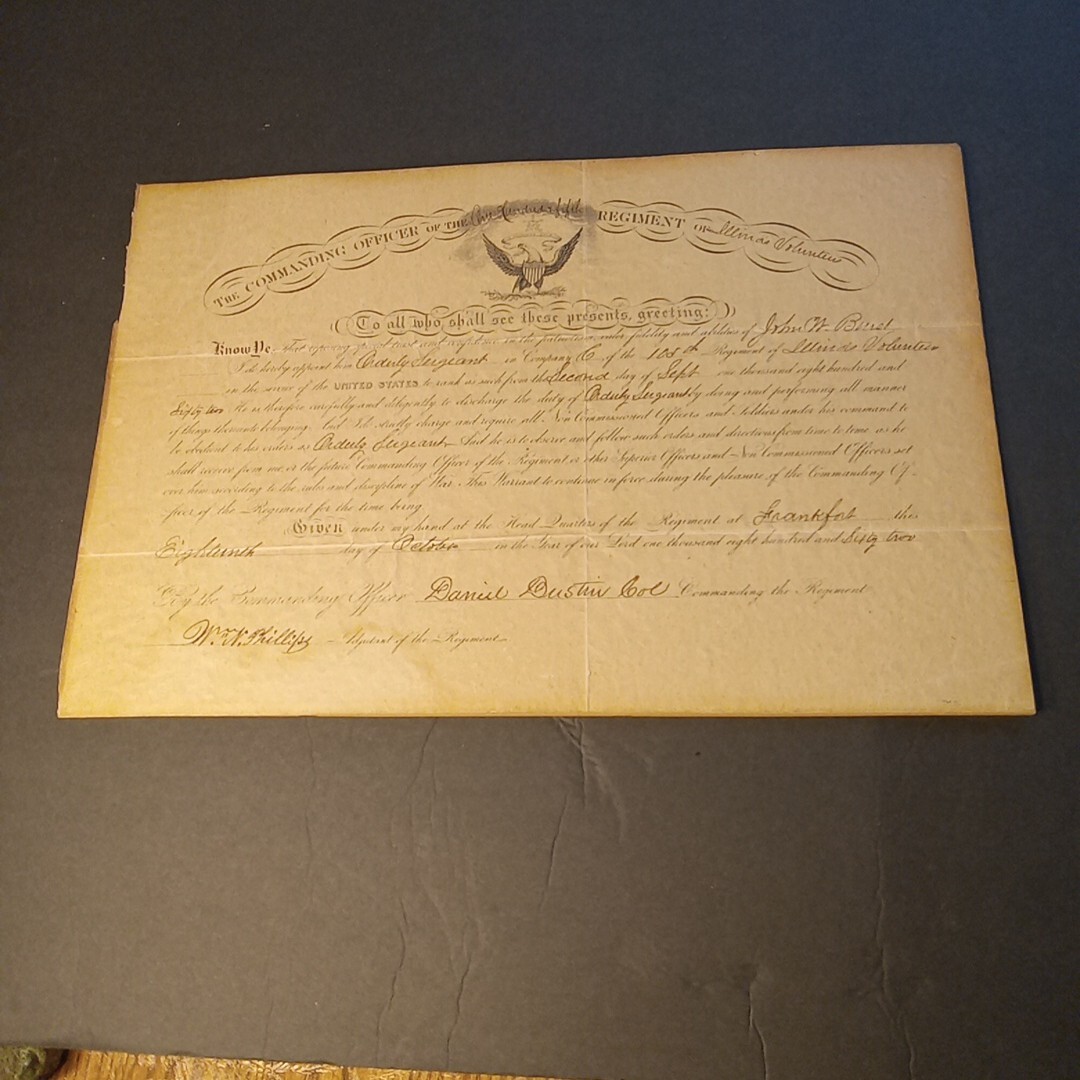 THE COMMANDING OFFICER OF THE One Hundred & fifth REGIMENT OF Illinois Volunteers
To all who shall see these presents, greeting:
Know Ye That reposing trust and confidence in the patriotism, valor fidelity and abilities of John W. Burst
I do hereby appoint him Orderly Sergeant in Company C of the 105th Regiment of Illinois Volunteers
in the service of the UNITED STATES to rank as such from the Second day of Sept one thousand eight hundred and
Sixty two He is therefore carefully and diligently to discharge the duty of Orderly Sergeant by doing and performing all manner
of things thereunto belonging. And I do strictly charge and require all Non Commissioned Officers and Soldiers under his command to
be obedient to his orders as Orderly Sergeant And he is to observe and follow such orders and directions from time to time as he
shall receive from me or the future Commanding Officer of the Regiment or other Superior Officers and Non Commissioned Officers set
over him according to the rules and discipline of War. This Warrant to continue in force during the pleasure of the Commanding Of-
ficer of the Regiment for the time being
Given under my hand at the Head Quarters of the Regiment at Frankfort this
Eighteenth day of October in the Year of our Lord one thousand eight hundred and Sixty two
By the Commanding Officer Daniel Dustin Col Commanding the Regiment
W. N. Phillips Adjutant of the Regiment